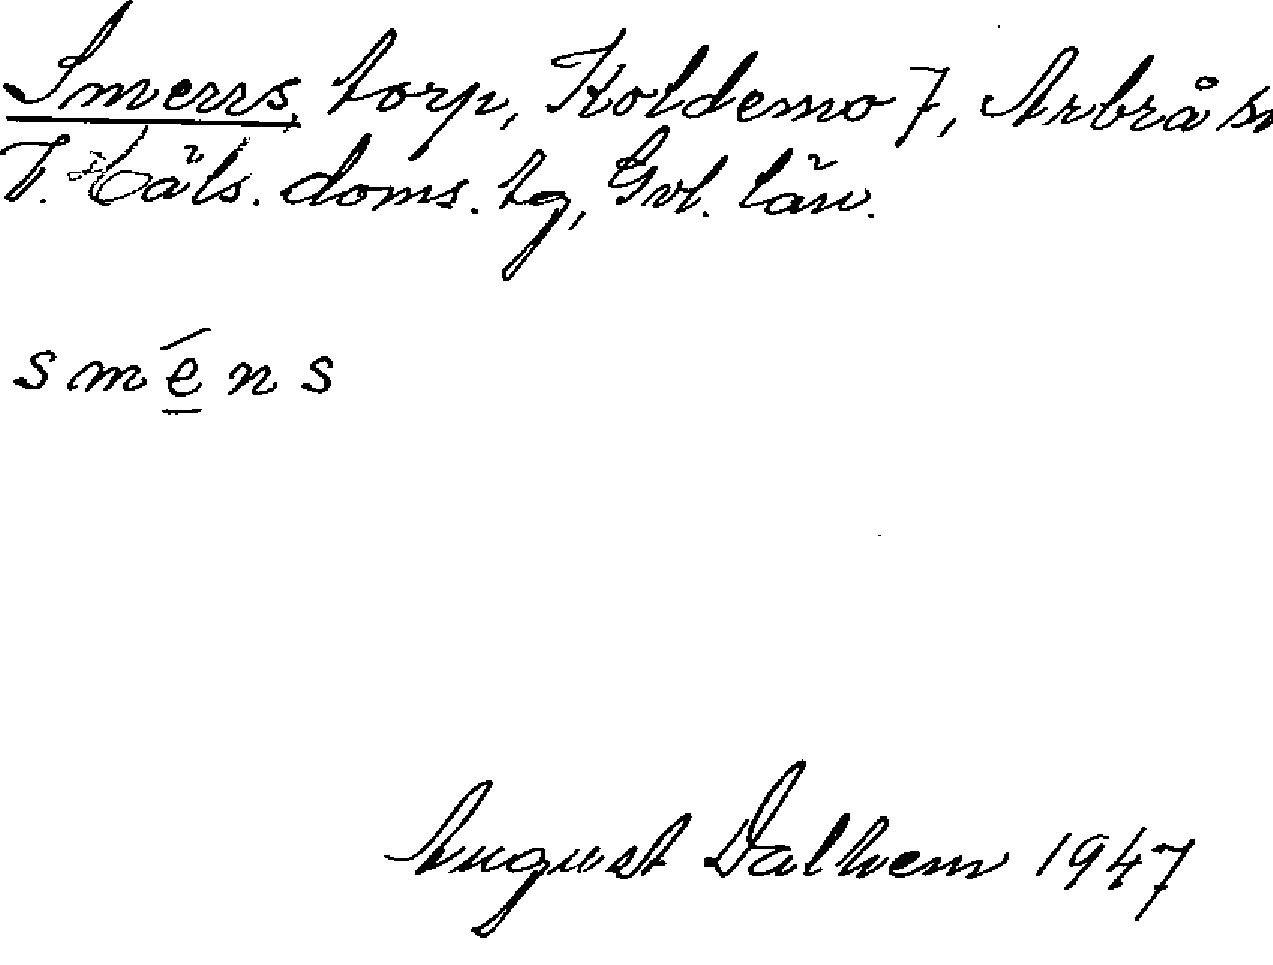 Smerrs, torp, Koldemo 7, Arbrå sn
V. Häls. doms. tg, Gvl. län.
s m é n s
August Dalhem 1947